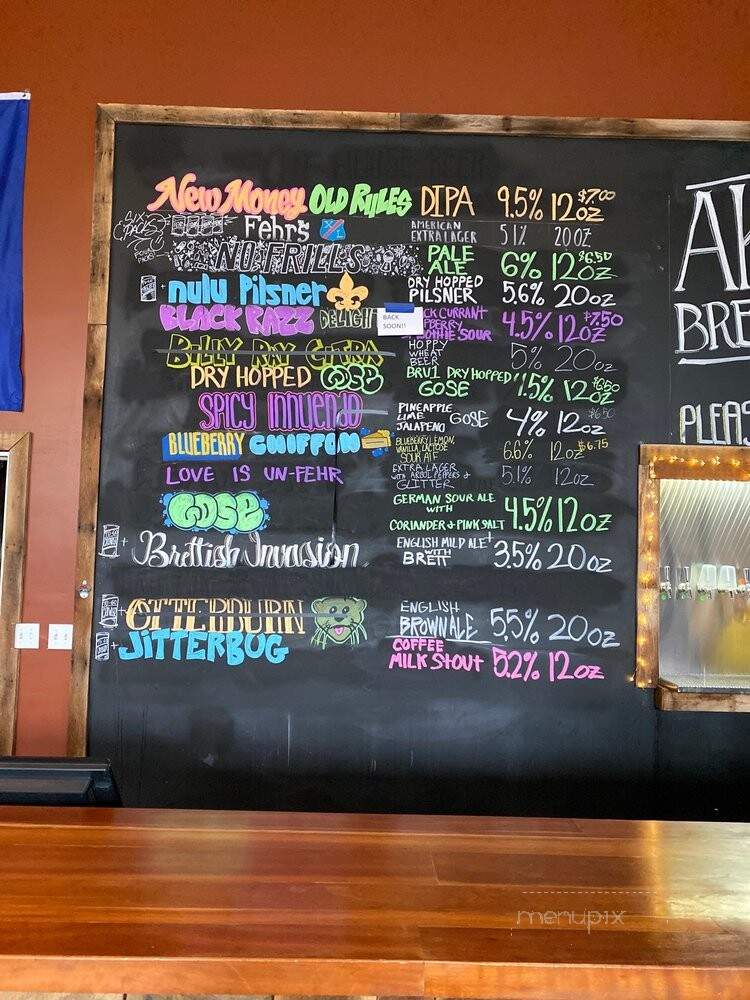 New Money Old Rules DIPA 9.5% 12oz $7.00
SIX PACKS Fehr's AMERICAN EXTRA LAGER 5.1% 20oz
NO FRILLS PALE ALE 6% 12oz $6.50
nulu Pilsner DRY HOPPED PILSNER 5.6% 20oz
BLACK RAZZ DELIGHT CURRANT SMOOTHIE SOUR 4.5% 12oz $7.50
BACK SOON!!
BILLY RAY CITRA HOPPY WHEAT BEER 5% 20oz
DRY HOPPED GOSE BRU1 DRY HOPPED GOSE 4.5% 12oz $6.50
SPICY INNUENDO PINEAPPLE LIME JALAPENO GOSE 4% 12oz $6.50
BLUEBERRY CHIFFON BLUEBERRY, LEMON, VANILLA, LACTOSE SOUR ALE 6.6% 12oz $6.75
LOVE IS UN-FEHR EXTRA LAGER WITH PEPPERS & GLITTER 5.1% 12oz
GOSE GERMAN SOUR ALE WITH CORIANDER & PINK SALT 4.5% 12oz
Brettish Invasion ENGLISH MILD ALE WITH BRETT 3.5% 20oz
OTTERBURN ENGLISH BROWN ALE 5.5% 20oz
JITTERBUG COFFEE MILK STOUT 5.2% 12oz
AK
BRE
PLEAS
menupix